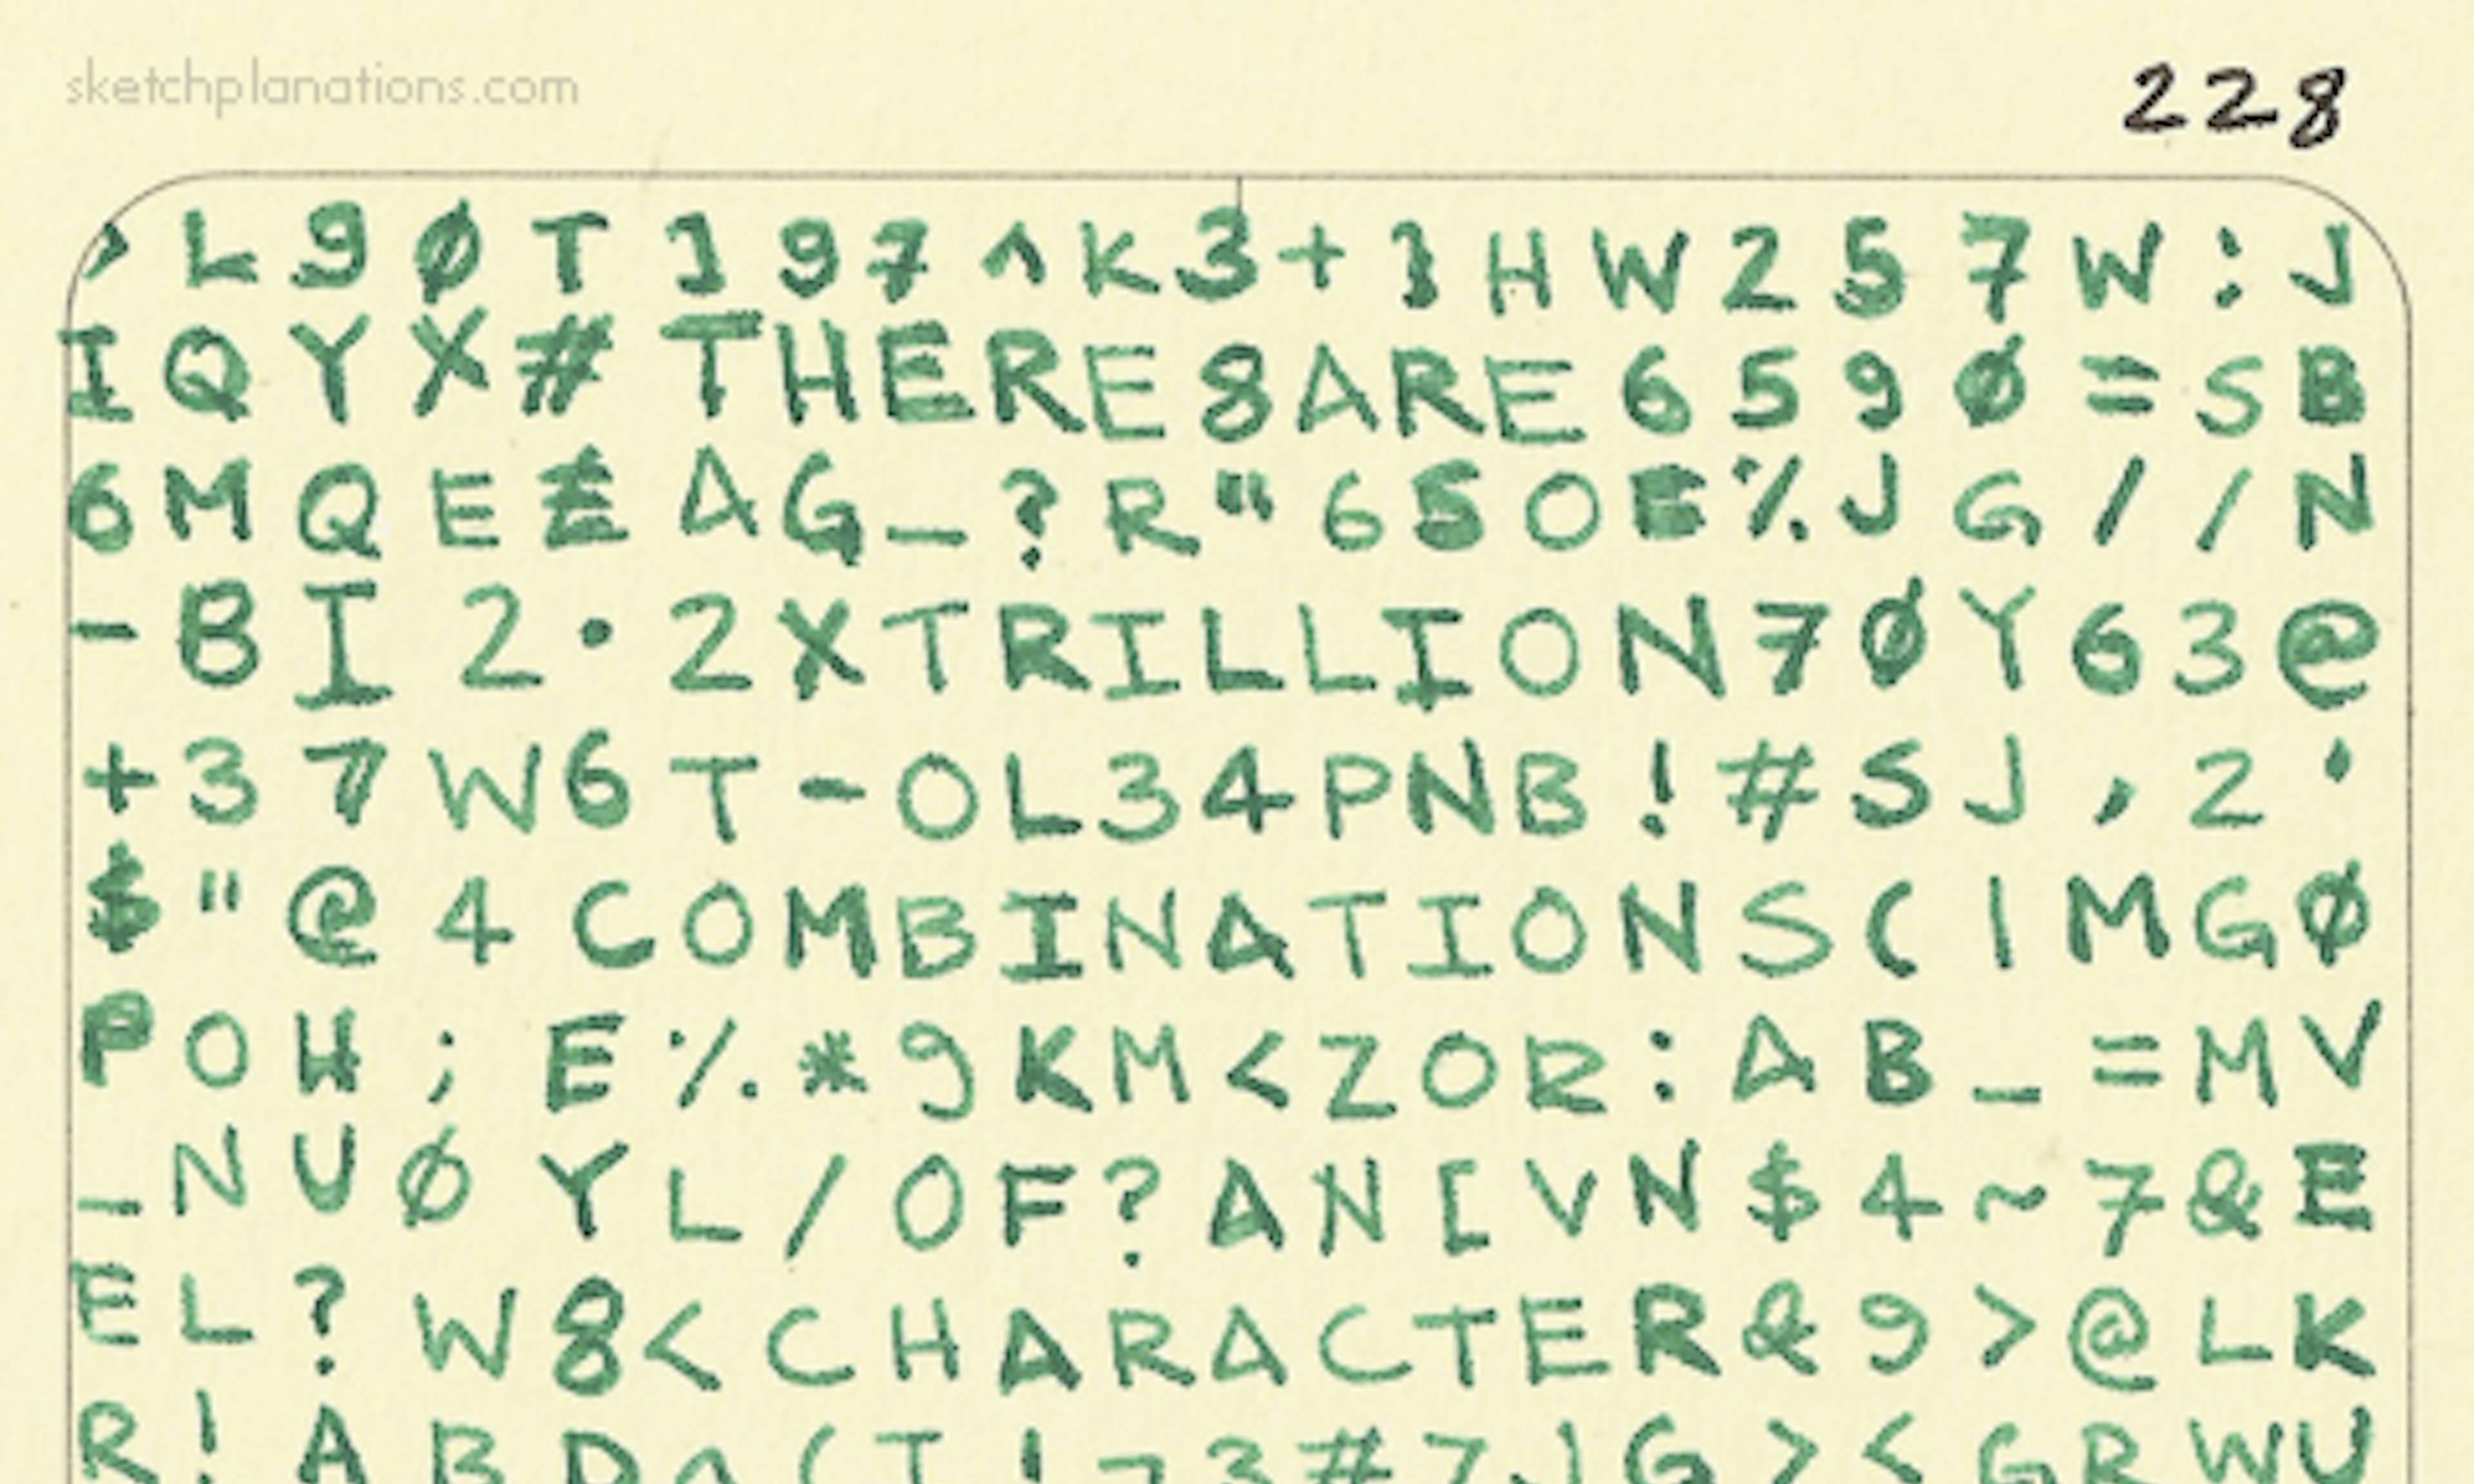 sketchplanations.com
228
> L 9 Ø T ] 9 7 ^ K 3 + } H W 2 5 7 W : J
I Q Y X # T H E R E 8 A R E 6 5 9 Ø = S B
6 M Q E E A G _ ? R " 6 5 O E % J G / / N
- B I 2 . 2 X T R I L L I O N 7 Ø Y 6 3 @
+ 3 7 W 6 T - O L 3 4 P N B ! # S J , 2 '
$ " @ 4 C O M B I N A T I O N S ( | M G Ø
P O H ; E % * 9 K M < Z O R : A B _ = M V
_ N U Ø Y L / O F ? A N [ V N $ 4 ~ 7 & E
E L ? W 8 < C H A R A C T E R & 9 > @ L K
R ! A B D ^ ( T ! 7 3 # 7 J G > < G R W U